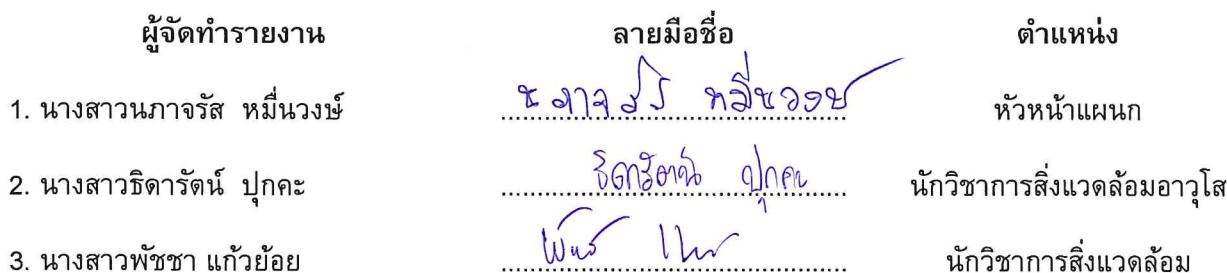 ผู้จัดทำรายงาน ลายมือชื่อ ตำแหน่ง
1. นางสาวนภาจรัส หมื่นวงษ์ นภาจรัส หมื่นวงษ์ หัวหน้าแผนก
2. นางสาวธิดารัตน์ ปุกคะ ธิดารัตน์ ปุกคะ นักวิชาการสิ่งแวดล้อมอาวุโส
3. นางสาวพัชชา แก้วย้อย นักวิชาการสิ่งแวดล้อม